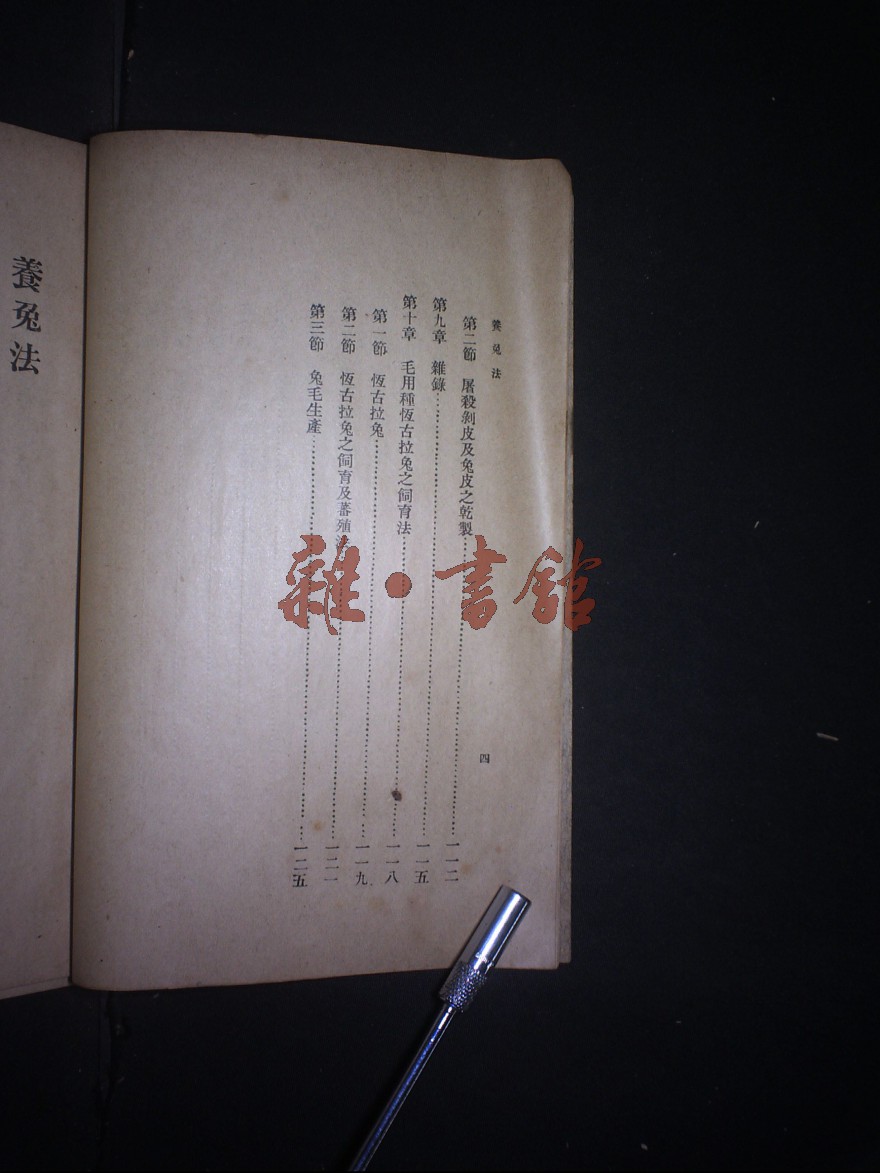 養兔法
四
第二節 屠殺剝皮及兔皮之乾製 一一二
第九章 雜錄 一一五
第十章 毛用種恆古拉兔之飼育法 一一八
第一節 恆古拉兔 一一九
第二節 恆古拉兔之飼育及蕃殖 一二一
第三節 兔毛生產 一二五
養兔法
雜·書館